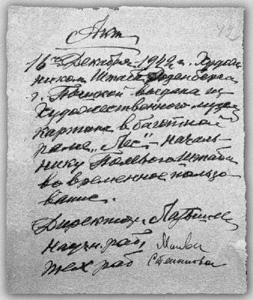 Акт
16го Декабря 1942 г. Худож
ником Штаба Розенберга
г.             выдана из
Художественного музея
картина в багетной
раме „Лес" началь-
нику Полевого штаба
во временное пользо
вание.
Директор
научн. раб.
тех раб